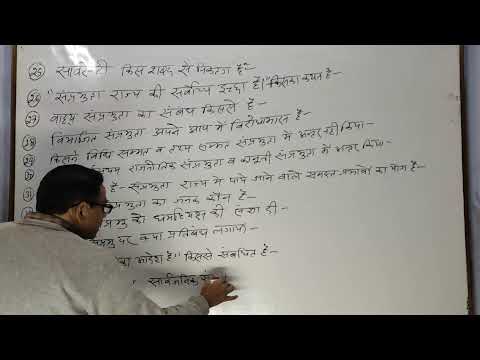 25 सावरेन्टी किस शब्द से निकला है -
26 "संप्रभुता राज्य की सर्वोच्च इच्छा है।" किसका कथन है -
27 वाह्य संप्रभुता का संबंध किससे है -
28 विभाजित संप्रभुता अपने आप में विरोधाभास है -
किसने विधि सम्मत व तथ्य सम्मत संप्रभुता में अन्तर नहीं किया
राजनीतिक संप्रभुता व कानूनी संप्रभुता में अन्तर किया
31 है - संप्रभुता राज्य में पाये जाने वाले समस्त प्रभावों का योग है -
संप्रभुता का जनक कौन है -
को की संज्ञा दी -
पर क्या प्रतिबंध लगाए -
का आदेश है" किससे संबंधित है -
सार्वजनिक